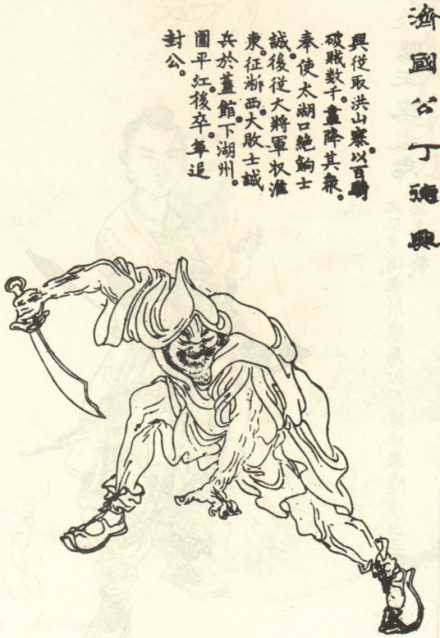 濟國公丁德興
興從取洪山寨。以百騎
破賊数千。盡降其衆。
奉使太湖口絶餉士
誠。後従大將軍収淮
東。征浙西。大敗士誠
兵於舊館。下湖州。
圍平江。後卒。軍追
封公。